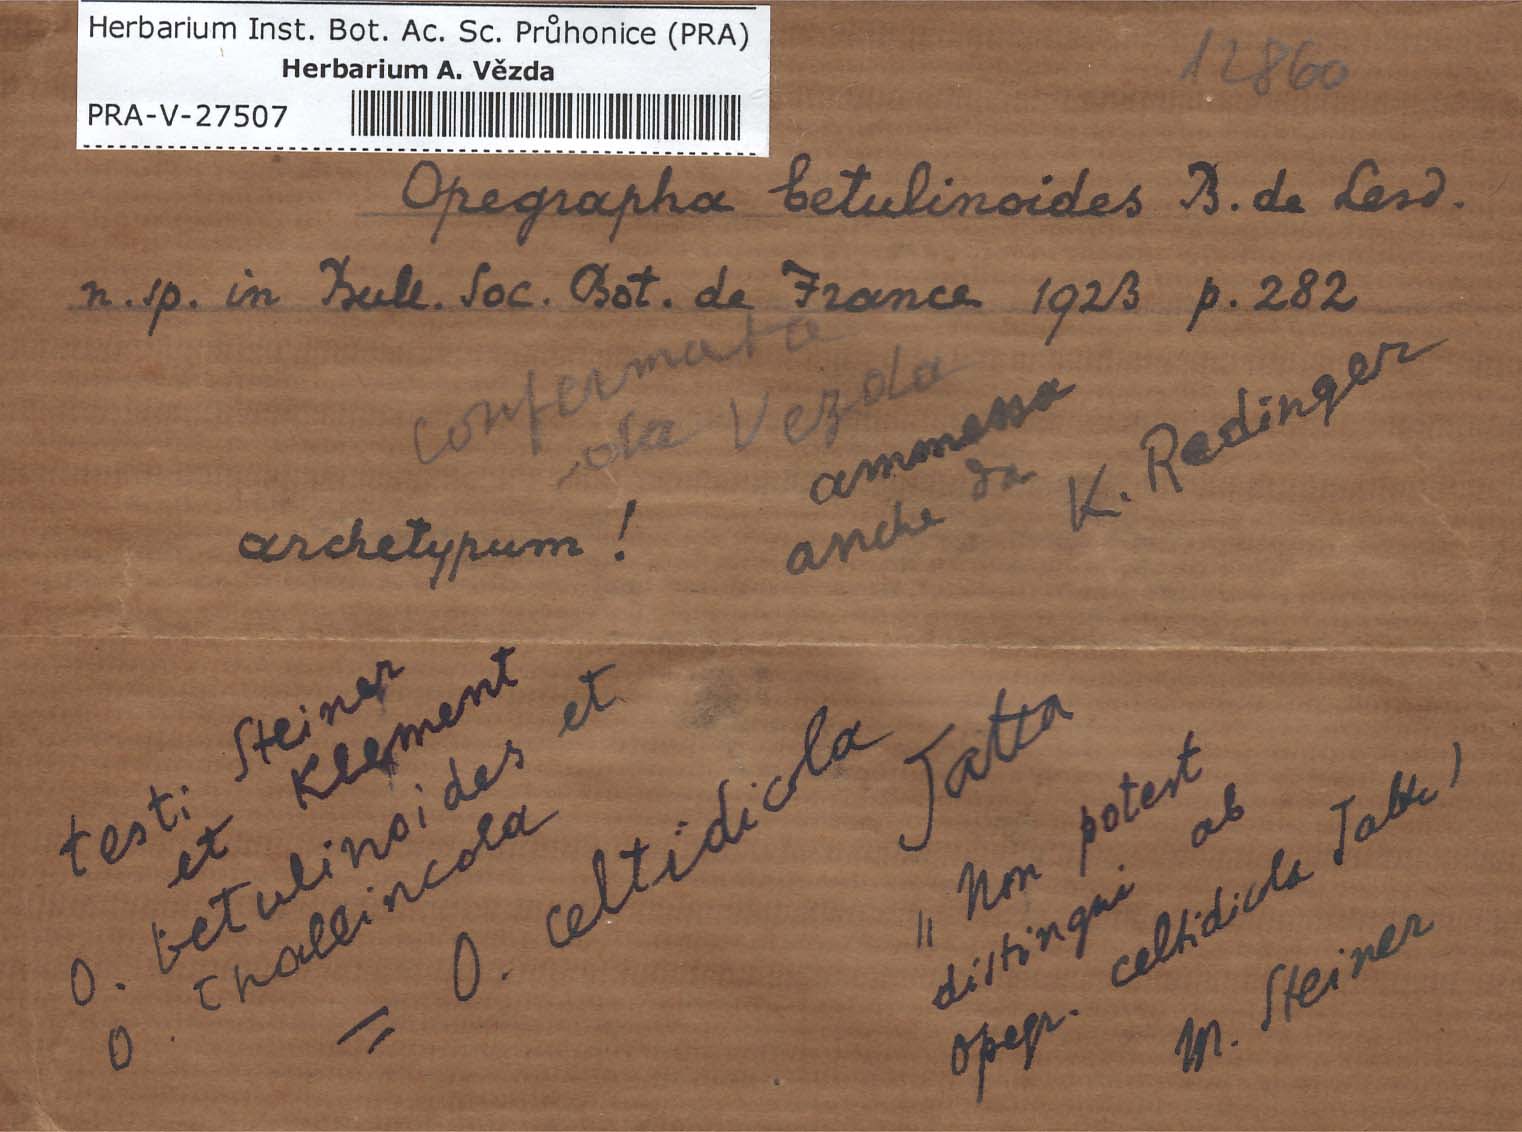 Herbarium Inst. Bot. Ac. Sc. Průhonice (PRA)
Herbarium A. Vězda
PRA-V-27507
12860
Opegrapha betulinoides B. de Lesd.
n. sp. in Bull. Soc. Bot. de France 1923 p. 282
confermata
da Vezda
ammessa
anche da K. Redinger
archetypum!
testi Steiner
et Klement
O. betulinoides et
O. thallincola
= O. celtidicola Jatta
"Non potest
distingui ab
Opegr. celtidicola
M. Steiner